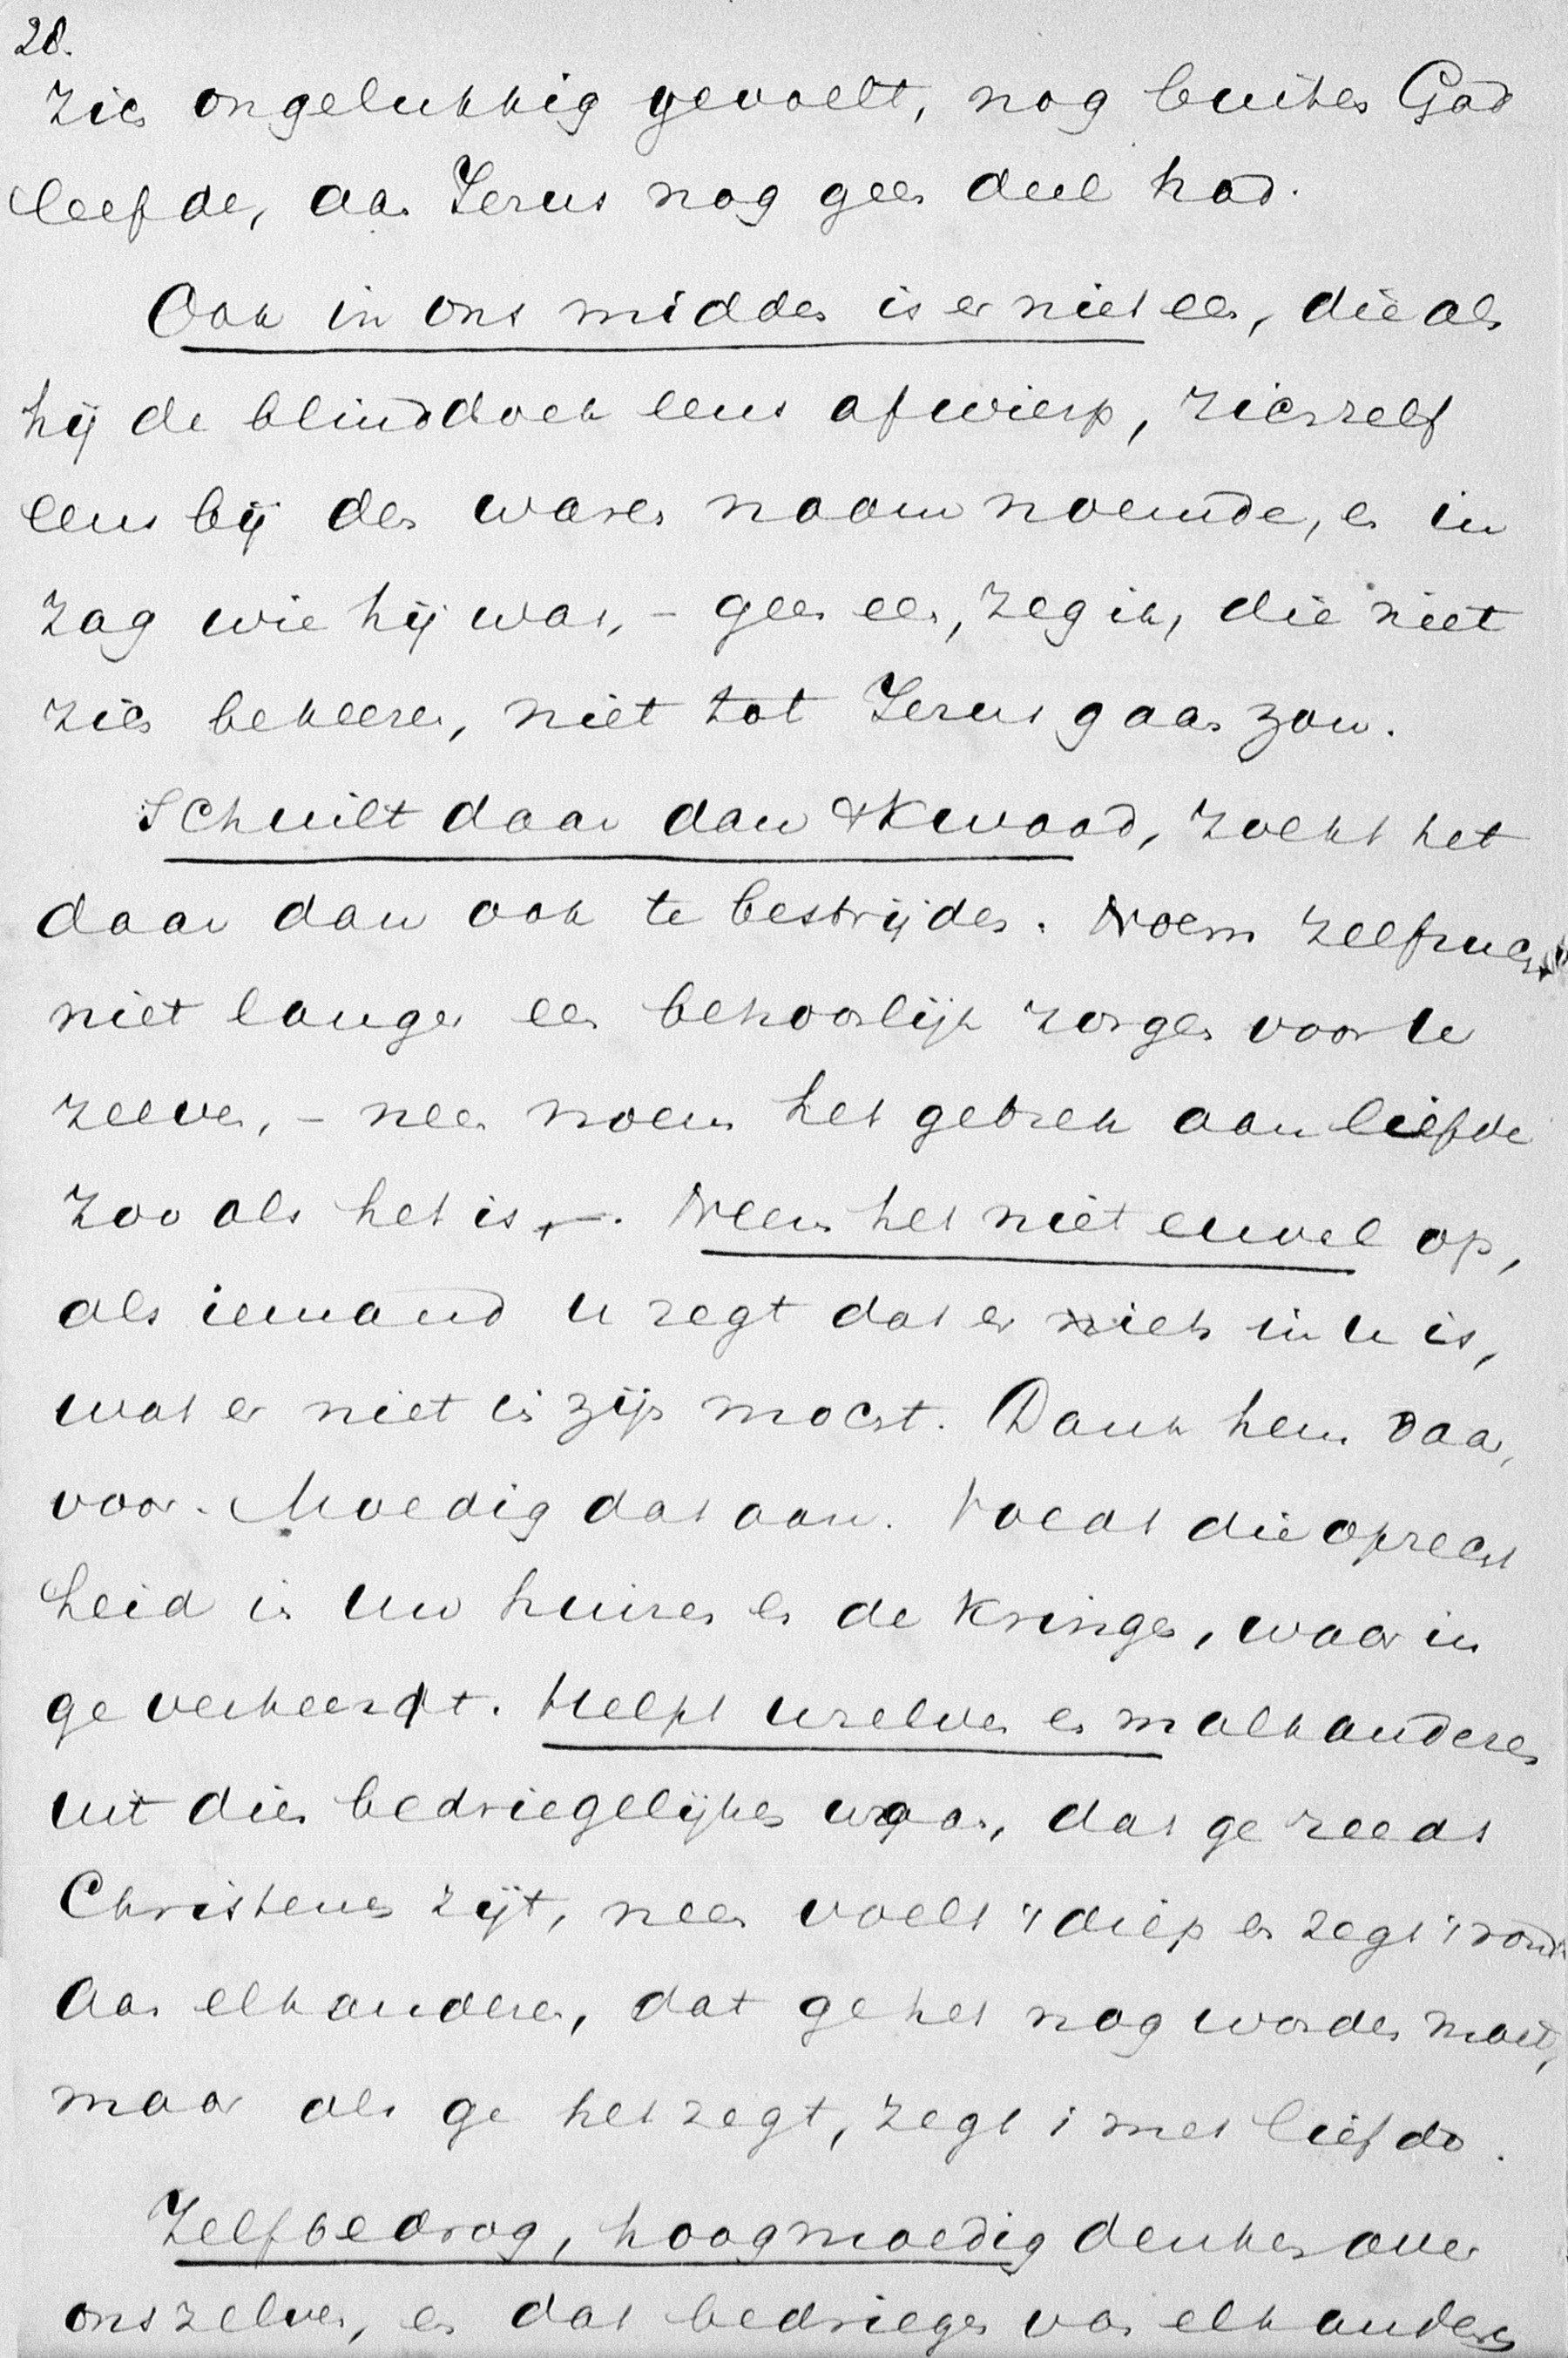 28.
zich ongelukkig gevoelt, nog buiten God
leefde, aan Jezus nog geen deel had.
Ook in ons midden is er niet een, die als
hij de blinddoek eens afwierp, zichzelf
eens bij den waren naam noemde, en in
zag wie hij was, - geen een, zeg ik, die niet
zich bekeeren, niet tot Jezus gaan zou.
Schuilt daar dan 't Kwaad, zoekt het
daar dan ook te bestrijden. Noem zelfzucht
niet langer een behoorlijk zorgen voor U
zelven, - neen noem het gebrek aan liefde
zoo als het is. Neem het niet euvel op,
als iemand U zegt dat er iets in U is,
wat er niet in zijn mocht. Dank hem daar
voor. Moedig dat aan. Voedt die oprecht
heid in Uw huizen en de Kringen, waar in
ge verkeert. Helpt Uzelven en malkanderen
uit dien bedriegelijken waan, dat ge reeds
Christenen zijt, neen voelt 't diep en zegt 't rond
aan elkanderen, dat ge het nog worden moet,
maar als ge het zegt, zegt 't met liefde.
Zelfbedrog, hoogmoedig denken over
onszelven, en dat bedriegen van elkanderen